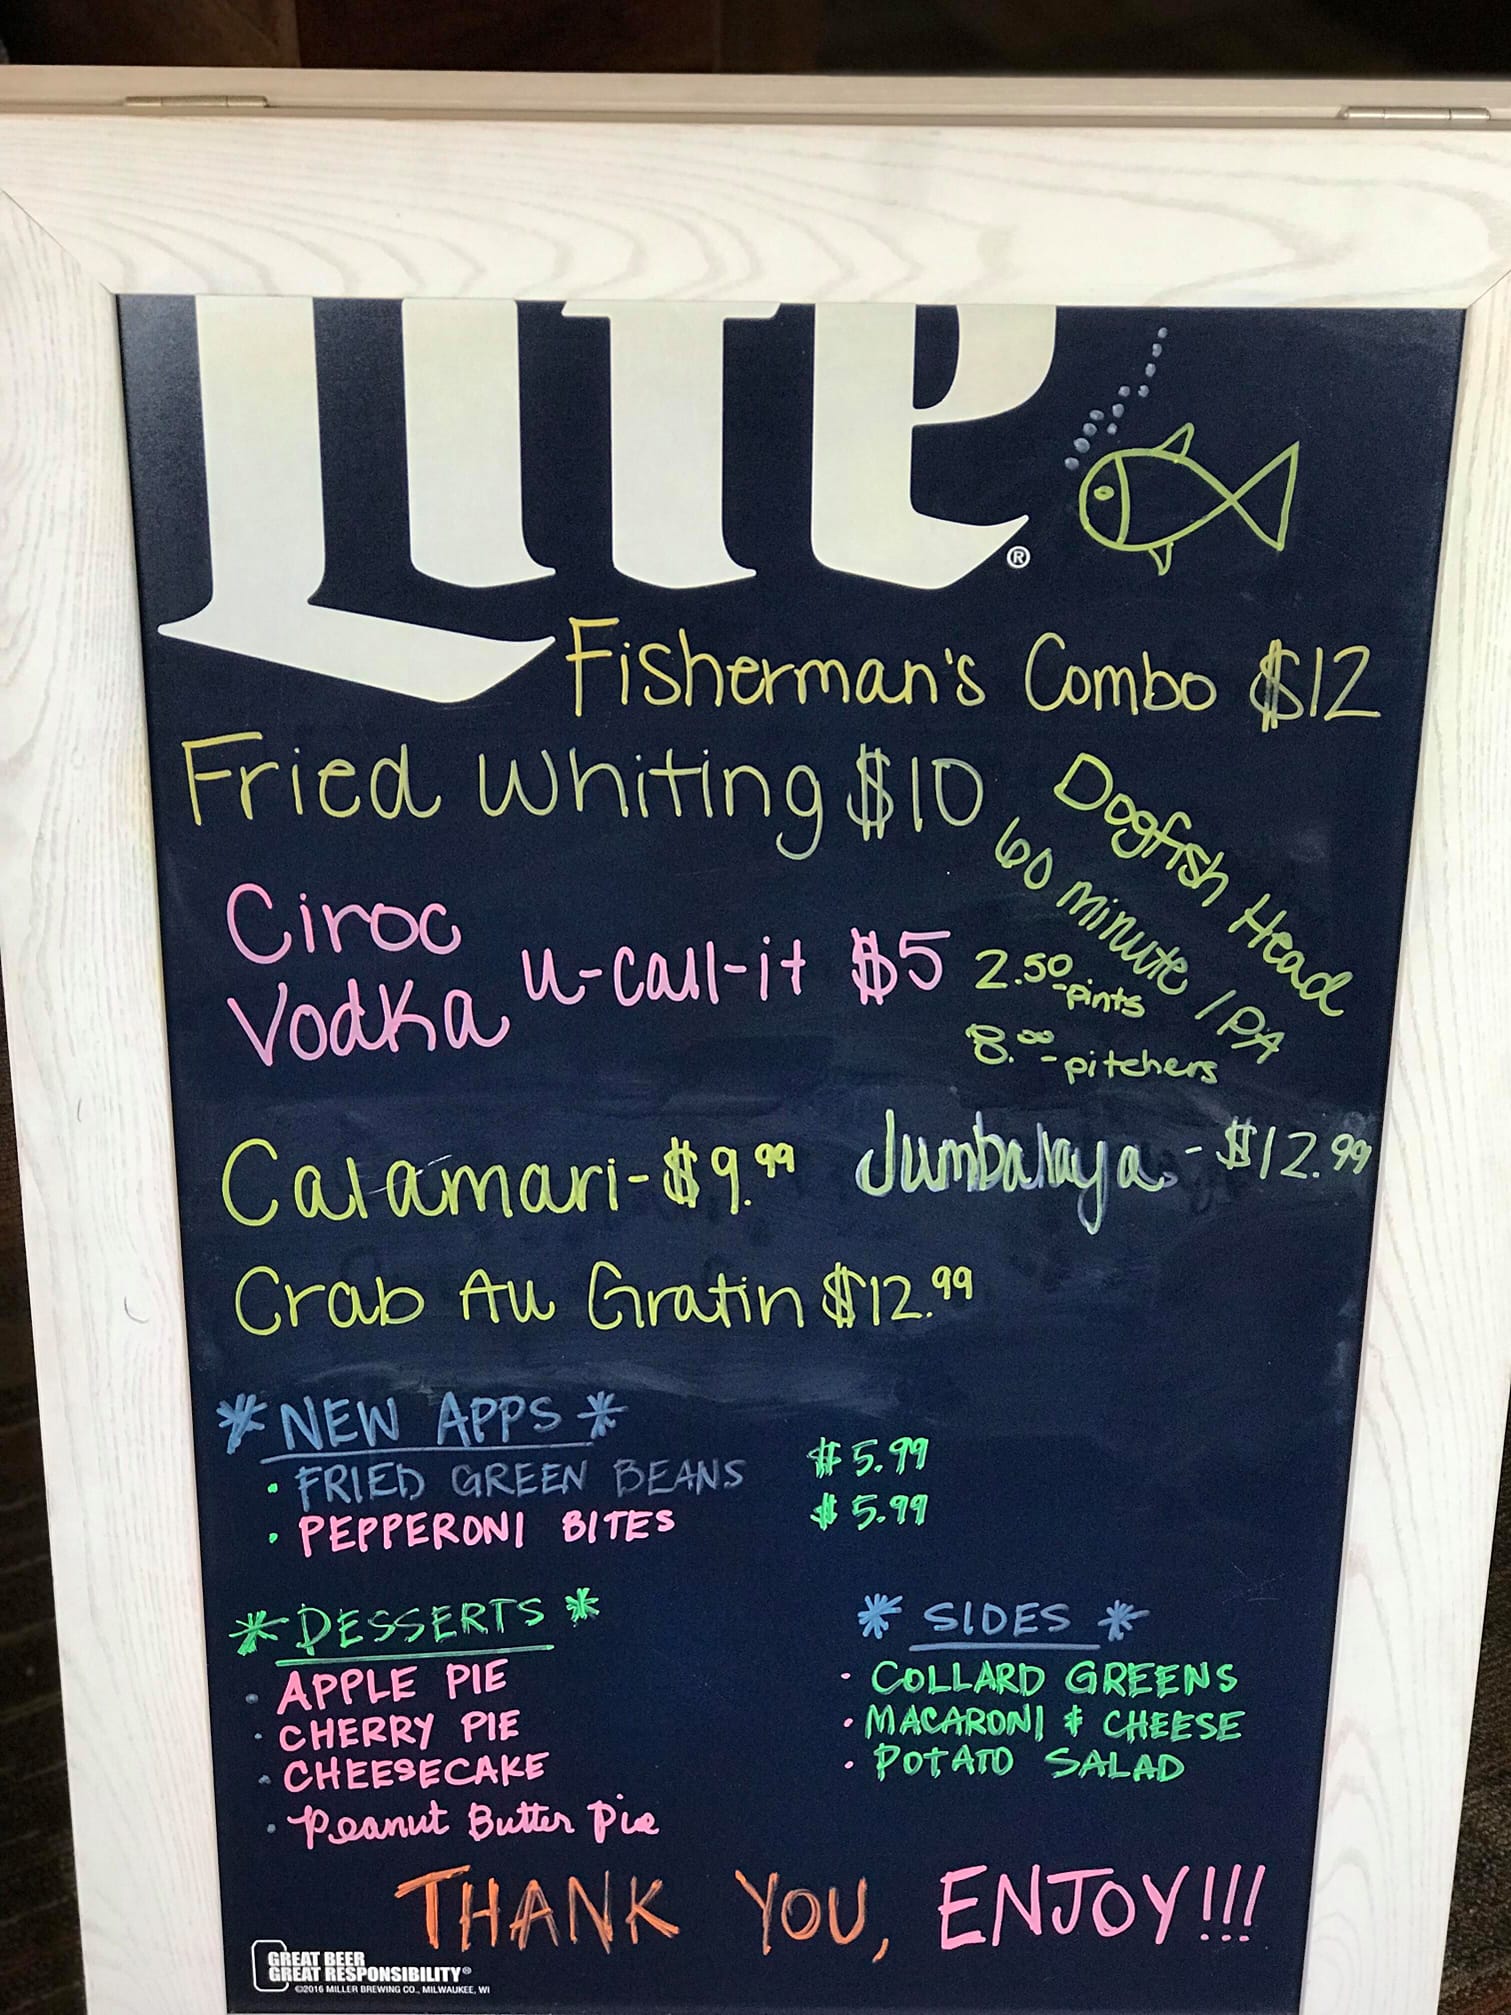 Lite®
Fisherman's Combo $12
Fried Whiting $10
Dogfish Head
60 minute IPA
2.50 - pints
8.00 - pitchers
Ciroc
Vodka
u-call-it $5
Calamari - $9.99
Jumbalaya - $12.99
Crab Au Gratin $12.99
* NEW APPS *
· FRIED GREEN BEANS $5.99
· PEPPERONI BITES $5.99
* DESSERTS *
· APPLE PIE
· CHERRY PIE
· CHEESECAKE
· Peanut Butter Pie
* SIDES *
· COLLARD GREENS
· MACARONI & CHEESE
· POTATO SALAD
THANK YOU, ENJOY!!!
GREAT BEER
GREAT RESPONSIBILITY®
©2016 MILLER BREWING CO., MILWAUKEE, WI